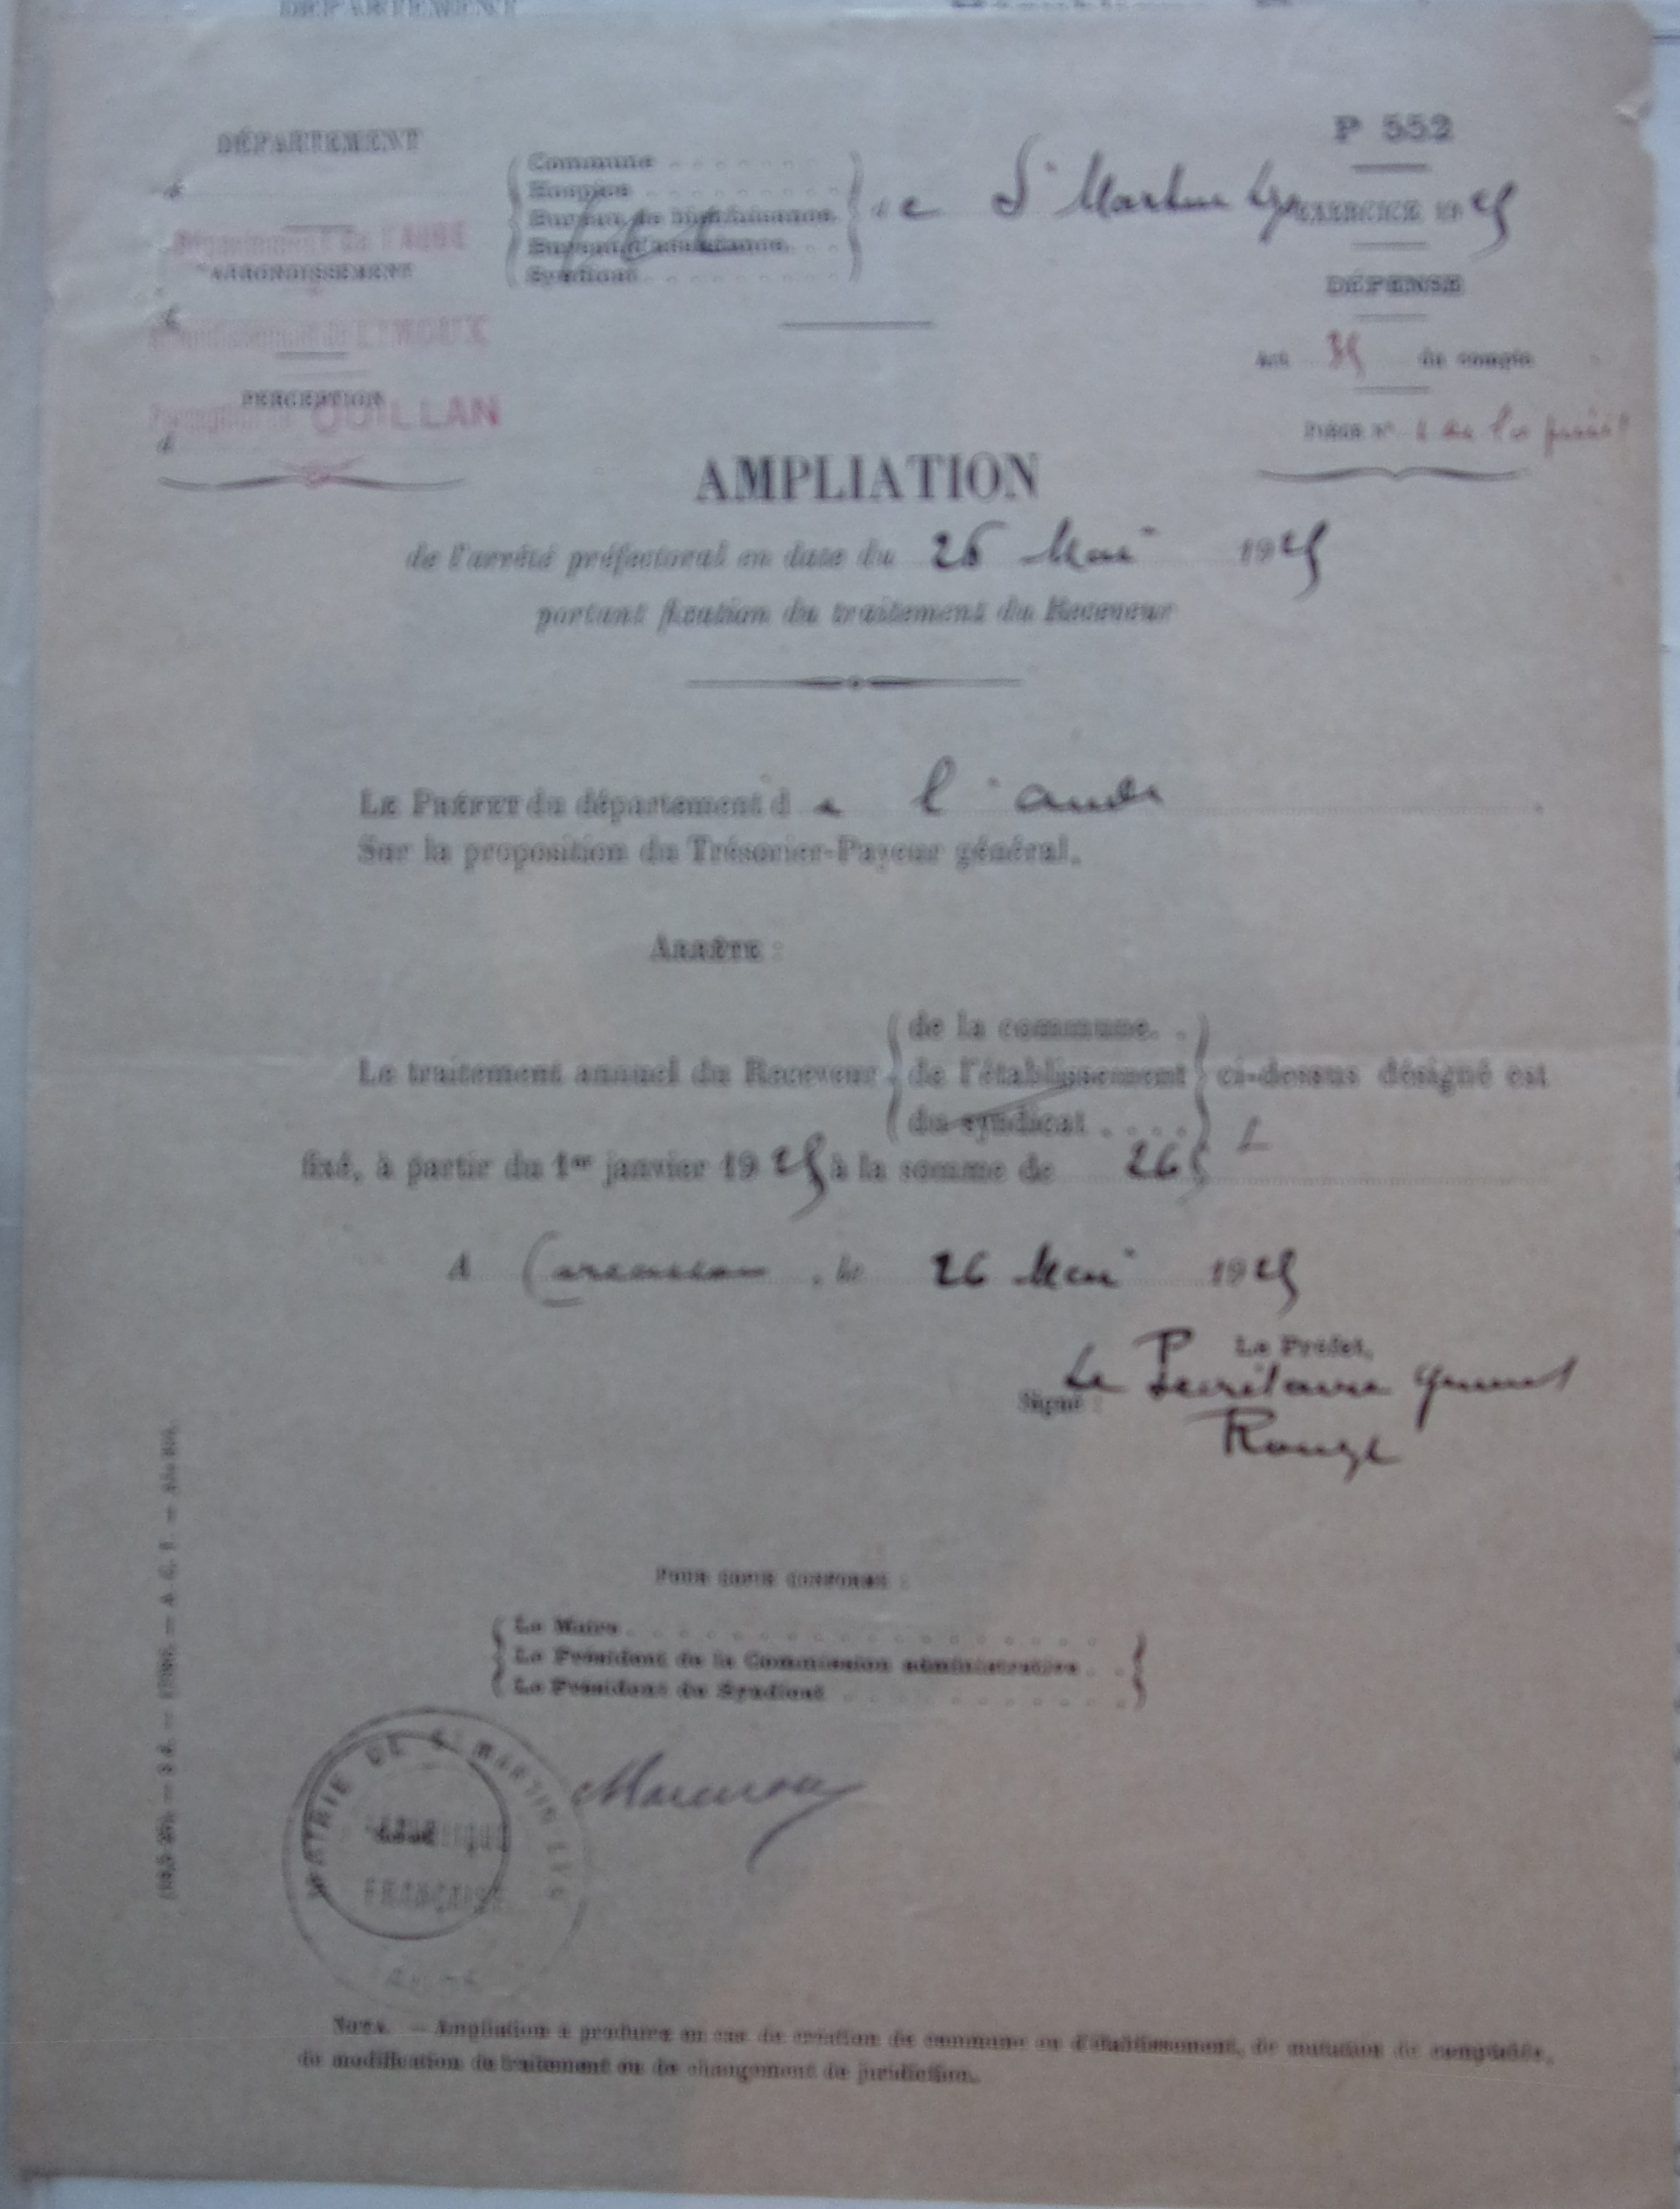 DÉPARTEMENT
DÉPARTEMENT
d
Département de l'AUDE
ARRONDISSEMENT
d
Arrondissement de LIMOUX
PERCEPTION
Perception de QUILLAN
d
Commune
Hospice
Bureau de bienfaisance
Bureau d'assistance
Syndicat
de St Martin Lys
P 552
EXERCICE 1925
DÉPENSE
Art. 35 du compte
PIÈCE N° 1 de la
AMPLIATION
de l'arrêté préfectoral en date du 26 Mai 1925
portant fixation du traitement du Receveur
LE PRÉFET du département de l'aude
Sur la proposition du Trésorier-Payeur général,
ARRÊTE :
Le traitement annuel du Receveur
de la commune.
de l'établissement
du syndicat
ci-dessus désigné est
fixé, à partir du 1er janvier 1925 à la somme de 265
A Carcassonne, le 26 Mai 1925
Le Préfet,
P Le Secrétaire Général
Signé :
Rouge
POUR COPIE CONFORME :
Le Maire
Le Président de la Commission administrative
Le Président du Syndicat
MAIRIE DE St MARTIN LYS
RÉPUBLIQUE
FRANÇAISE
AUDE
NOTA. — Ampliation à produire en cas de création de commune ou d'établissement, de mutation de comptable,
de modification de traitement ou de changement de juridiction.